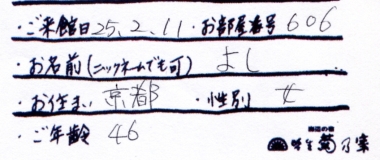 ・ご来館日 25.2.11 ・お部屋番号 606
・お名前(ニックネームでも可) よし
・お住まい 京都 ・性別 女
・ご年齢 46